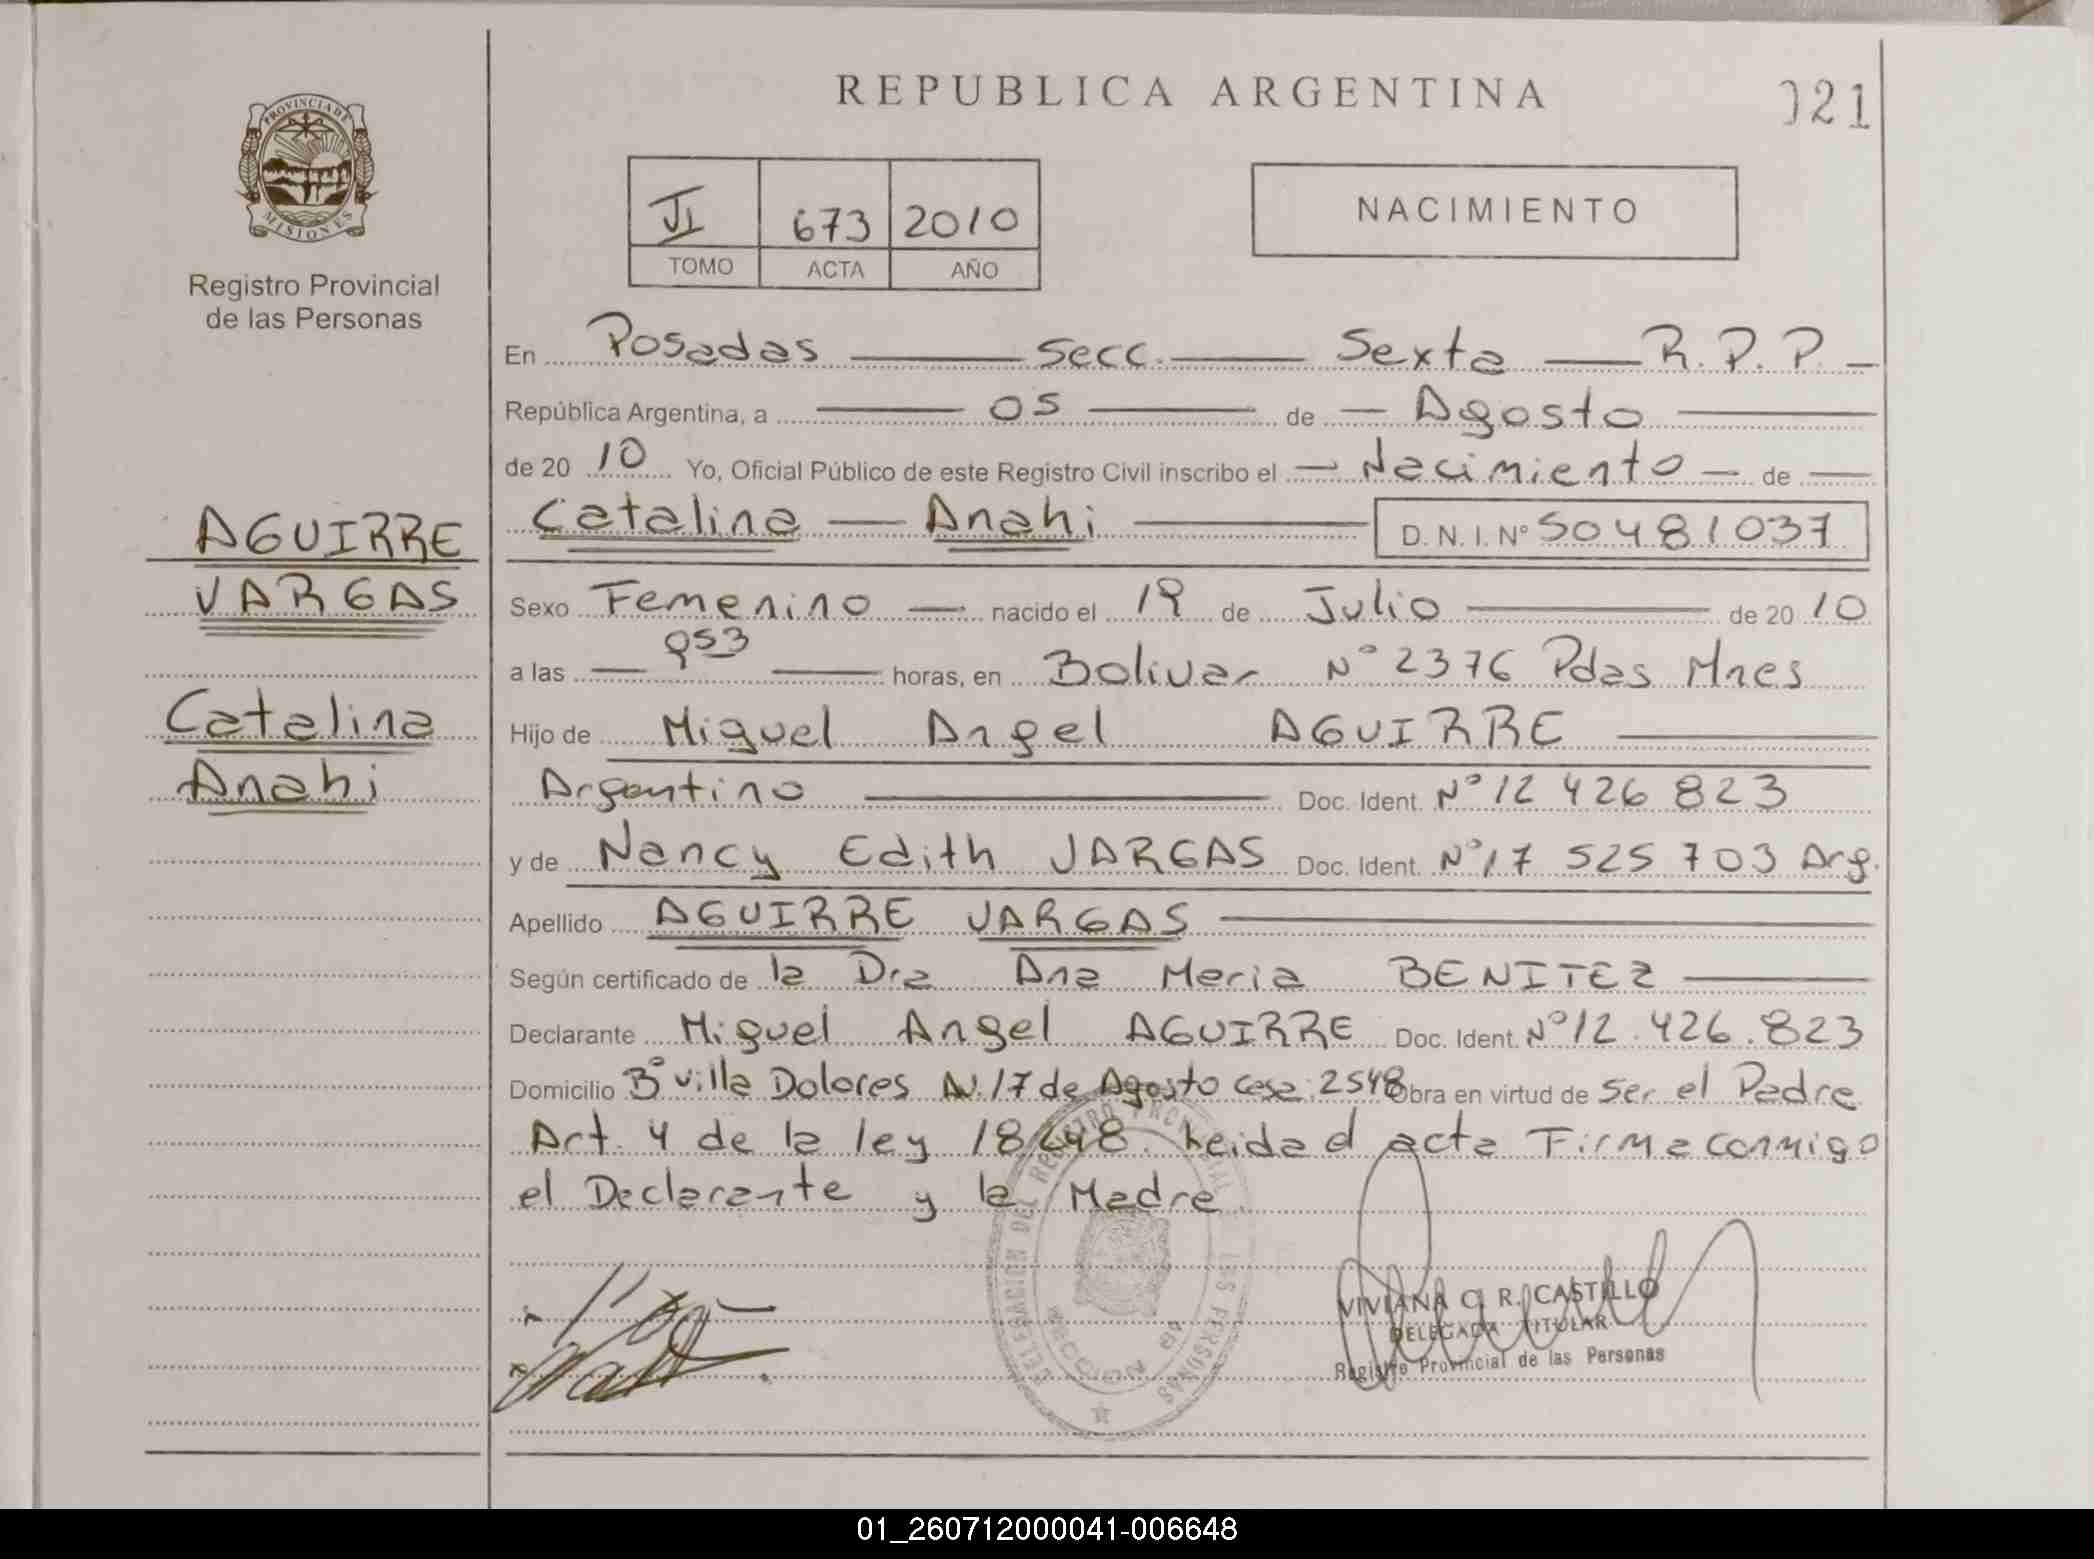 REPUBLICA ARGENTINA
021
PROVINCIA DE
MISIONES
Registro Provincial
de las Personas
VI 673 2010
TOMO ACTA AÑO
NACIMIENTO
AGUIRRE
VARGAS
Catalina
Anahi
En Posadas Secc. Sexta R.P.P.
República Argentina, a 05 de Agosto
de 20 10 Yo, Oficial Público de este Registro Civil inscribo el Nacimiento de
Catalina Anahi D.N.I. Nº 50481037
Sexo Femenino nacido el 19 de Julio de 20 10
a las 953 horas, en Bolivar Nº 2376 Pdas Mnes
Hijo de Miguel Angel AGUIRRE
Argentino Doc. Ident. Nº 12 426 823
y de Nancy Edith VARGAS Doc. Ident. Nº 17 525 703 Arg.
Apellido AGUIRRE VARGAS
Según certificado de la Dra Ana Maria BENITEZ
Declarante Miguel Angel AGUIRRE Doc. Ident. Nº 12.426.823
Domicilio Bº Villa Dolores Av. 17 de Agosto casa 2548 Obra en virtud de Ser el Padre
Art. 4 de la ley 18248. Leida el acta Firma conmigo
el Declarante y la Madre
DELEGACION DEL REGISTRO PROVINCIAL DE LAS PERSONAS
SECCION 6a
VIVIANA C. R. CASTILLO
DELEGADA TITULAR
Registro Provincial de las Personas
01_260712000041-006648